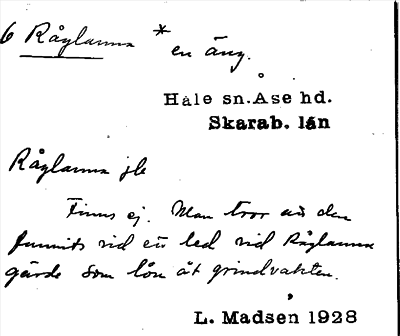 6 Råglanna * en äng.
Håle sn. Åse hd.
Skarab. län
Råglanna jle
Finns ej. Man tror att den
funnits vid en led vid Råglanna
gärde som lön åt grindvakten.
L. Madsen 1928